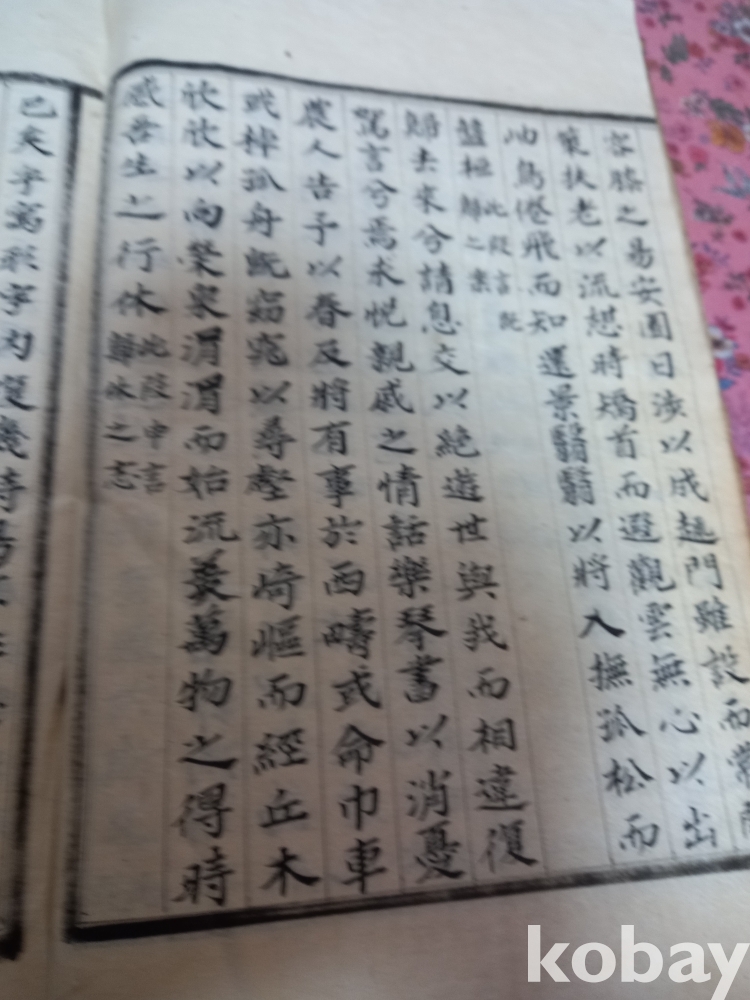 容膝之易安園日涉以成趣門雖設而常
策扶老以流憩時矯首而遐觀雲無心以出
岫鳥倦飛而知還景翳翳以將入撫孤松而
盤桓此段言既
歸之樂
歸去來兮請息交以絕遊世與我而相違復
駕言兮焉求悅親戚之情話樂琴書以消憂
農人告予以春及將有事於西疇或命巾車
或棹孤舟既窈窕以尋壑亦崎嶇而經丘木
欣欣以向榮泉涓涓而始流羨萬物之得時
感吾生之行休此段申言
歸休之志
已矣乎寓形宇内復幾時曷
kobay